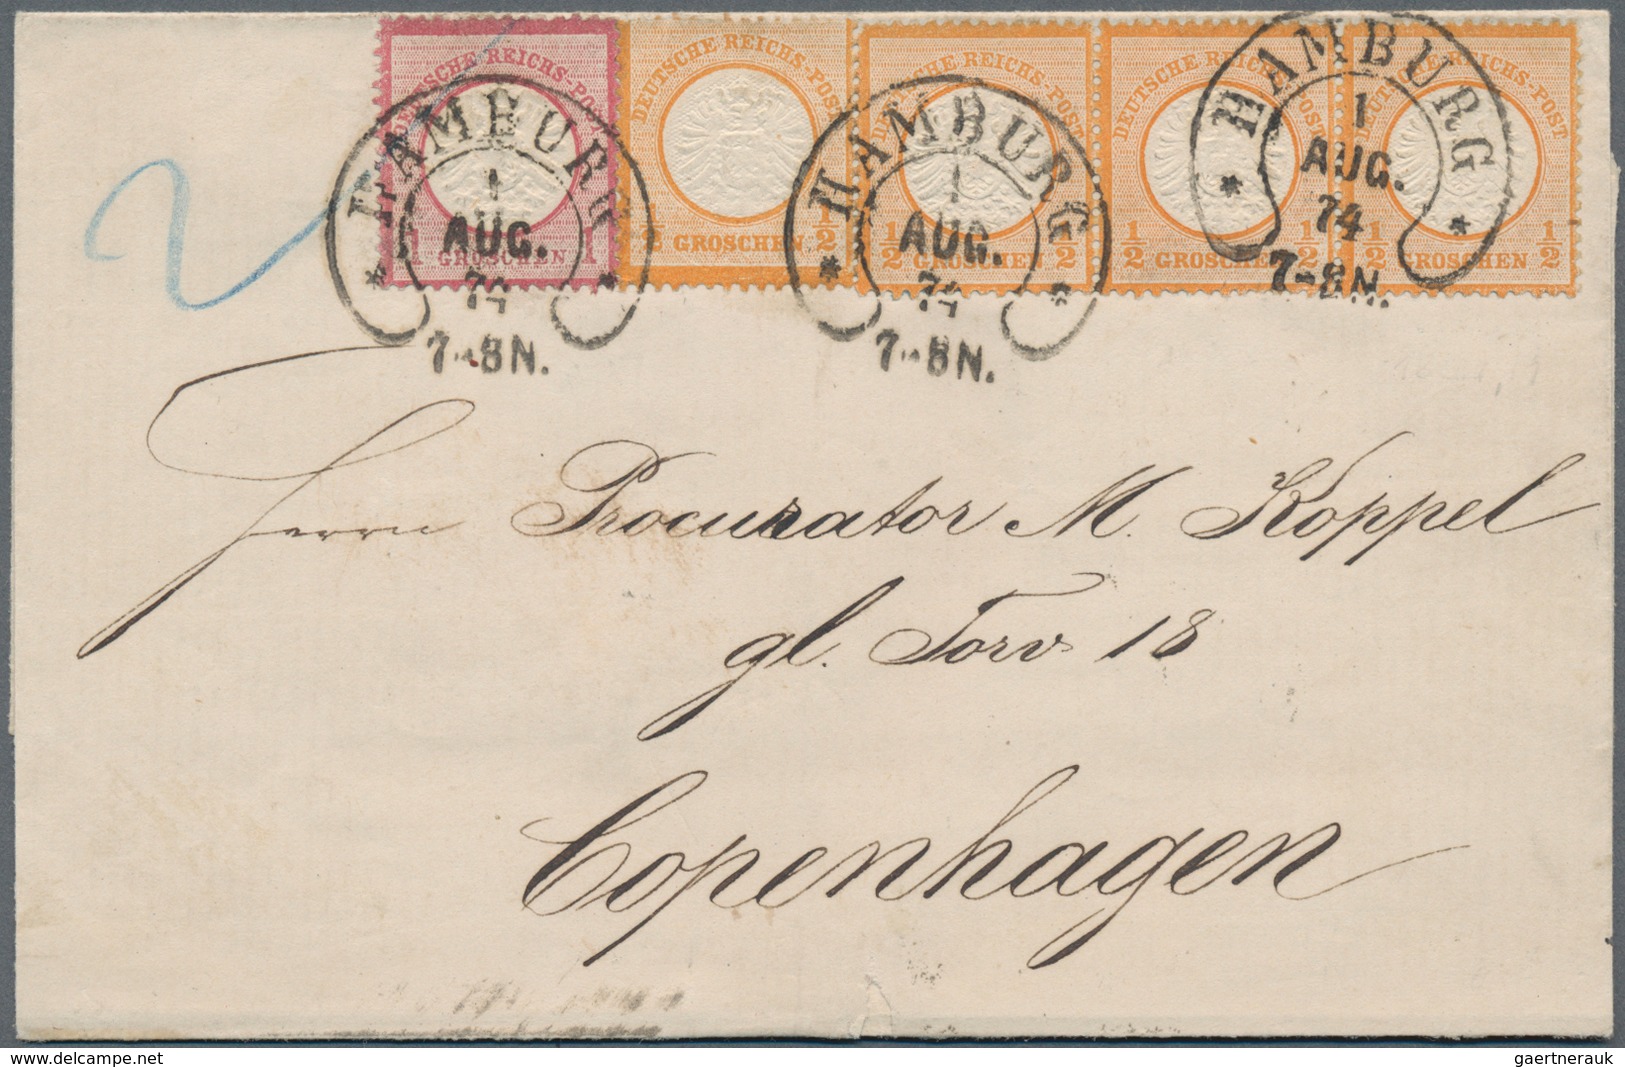 DEUTSCHE REICHS-POST
1 GROSCHEN 1
DEUTSCHE REICHS-POST
1/2 GROSCHEN 1/2
DEUTSCHE REICHS-POST
1/2 GROSCHEN 1/2
DEUTSCHE REICHS-POST
1/2 GROSCHEN 1/2
DEUTSCHE REICHS-POST
1/2 GROSCHEN 1/2
HAMBURG
1
AUG.
74
7-8N.
HAMBURG
1
AUG.
74
7-8N.
HAMBURG
1
AUG.
74
7-8N.
2
Herrn Procurator M. Koppel
gl. Torv 18
Copenhagen
www.delcampe.net
gaertnerauk